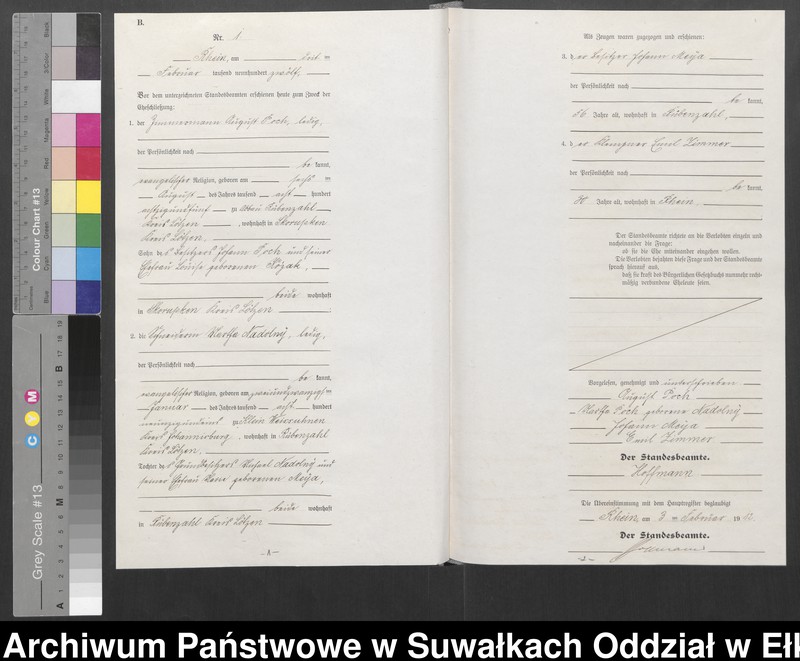 B.
Nr. 1
Rhein, am
Februar tausend neunhundert zwölf,
Vor dem unterzeichneten Standesbeamten erschienen heute zum Zweck der
Eheschließung:
1. der Zimmermann August Poch, ledig,
der Persönlichkeit nach
be kannt,
evangelischer Religion, geboren am sechs
August des Jahres tausend acht hundert
zu Rübenzahl
Kreis Lötzen, wohnhaft in
Kreis Lötzen,
Sohn des Besitzers Johann Poch und seiner
Ehefrau Louise geborenen
beide wohnhaft
in Kreis Lötzen
2. die Schneiderin Martha Nadolny, ledig,
der Persönlichkeit nach
be kannt,
evangelischer Religion, geboren am zweiundzwanzigsten
Januar des Jahres tausend acht hundert
neunzig zu Klein
Kreis Johannisburg, wohnhaft in Rübenzahl
Kreis Lötzen,
Tochter des Grundbesitzers Michael Nadolny und
seiner Ehefrau geborenen Meija,
beide wohnhaft
in Rübenzahl Kreis Lötzen
- A -
Als Zeugen waren zugezogen und erschienen:
3. der Besitzer Johann Meija
der Persönlichkeit nach
be kannt,
56 Jahre alt, wohnhaft in Rübenzahl,
4. der Klempner Emil Zimmer
der Persönlichkeit nach
be kannt,
Jahre alt, wohnhaft in Rhein,
Der Standesbeamte richtete an die Verlobten einzeln und
nacheinander die Frage:
ob sie die Ehe miteinander eingehen wollen.
Die Verlobten bejahten diese Frage und der Standesbeamte
sprach hierauf aus,
daß sie kraft des Bürgerlichen Gesetzbuchs nunmehr recht-
mäßig verbundene Eheleute seien.
Vorgelesen, genehmigt und unterschrieben
August Poch
Martha Poch geborene Nadolny
Johann Meija
Emil Zimmer
Der Standesbeamte.
Hoffmann
Die Übereinstimmung mit dem Hauptregister beglaubigt
Rhein, am 3. ten Februar 1912
Der Standesbeamte.
Colour Chart #13
Blue
Cyan
Green
Yellow
Red
Magenta
White
3/Color
Black
Centimetres
Grey Scale #13
C Y M
A 1 2 3 4 5 6 M 8 9 10 11 12 13 14 15 B 17 18 19
Archiwum Państwowe w Suwałkach Oddział w Ełk